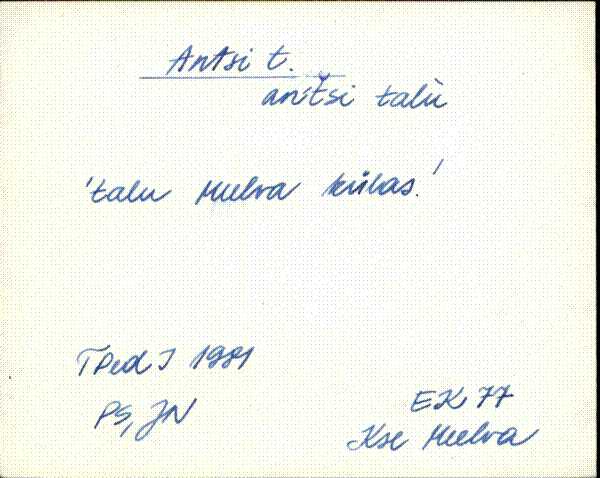 Antsi t.
an´t̆si talù
'talu Mulva külas.'
TPed I 1981
PS, JN
EK 77
Kse Mulva